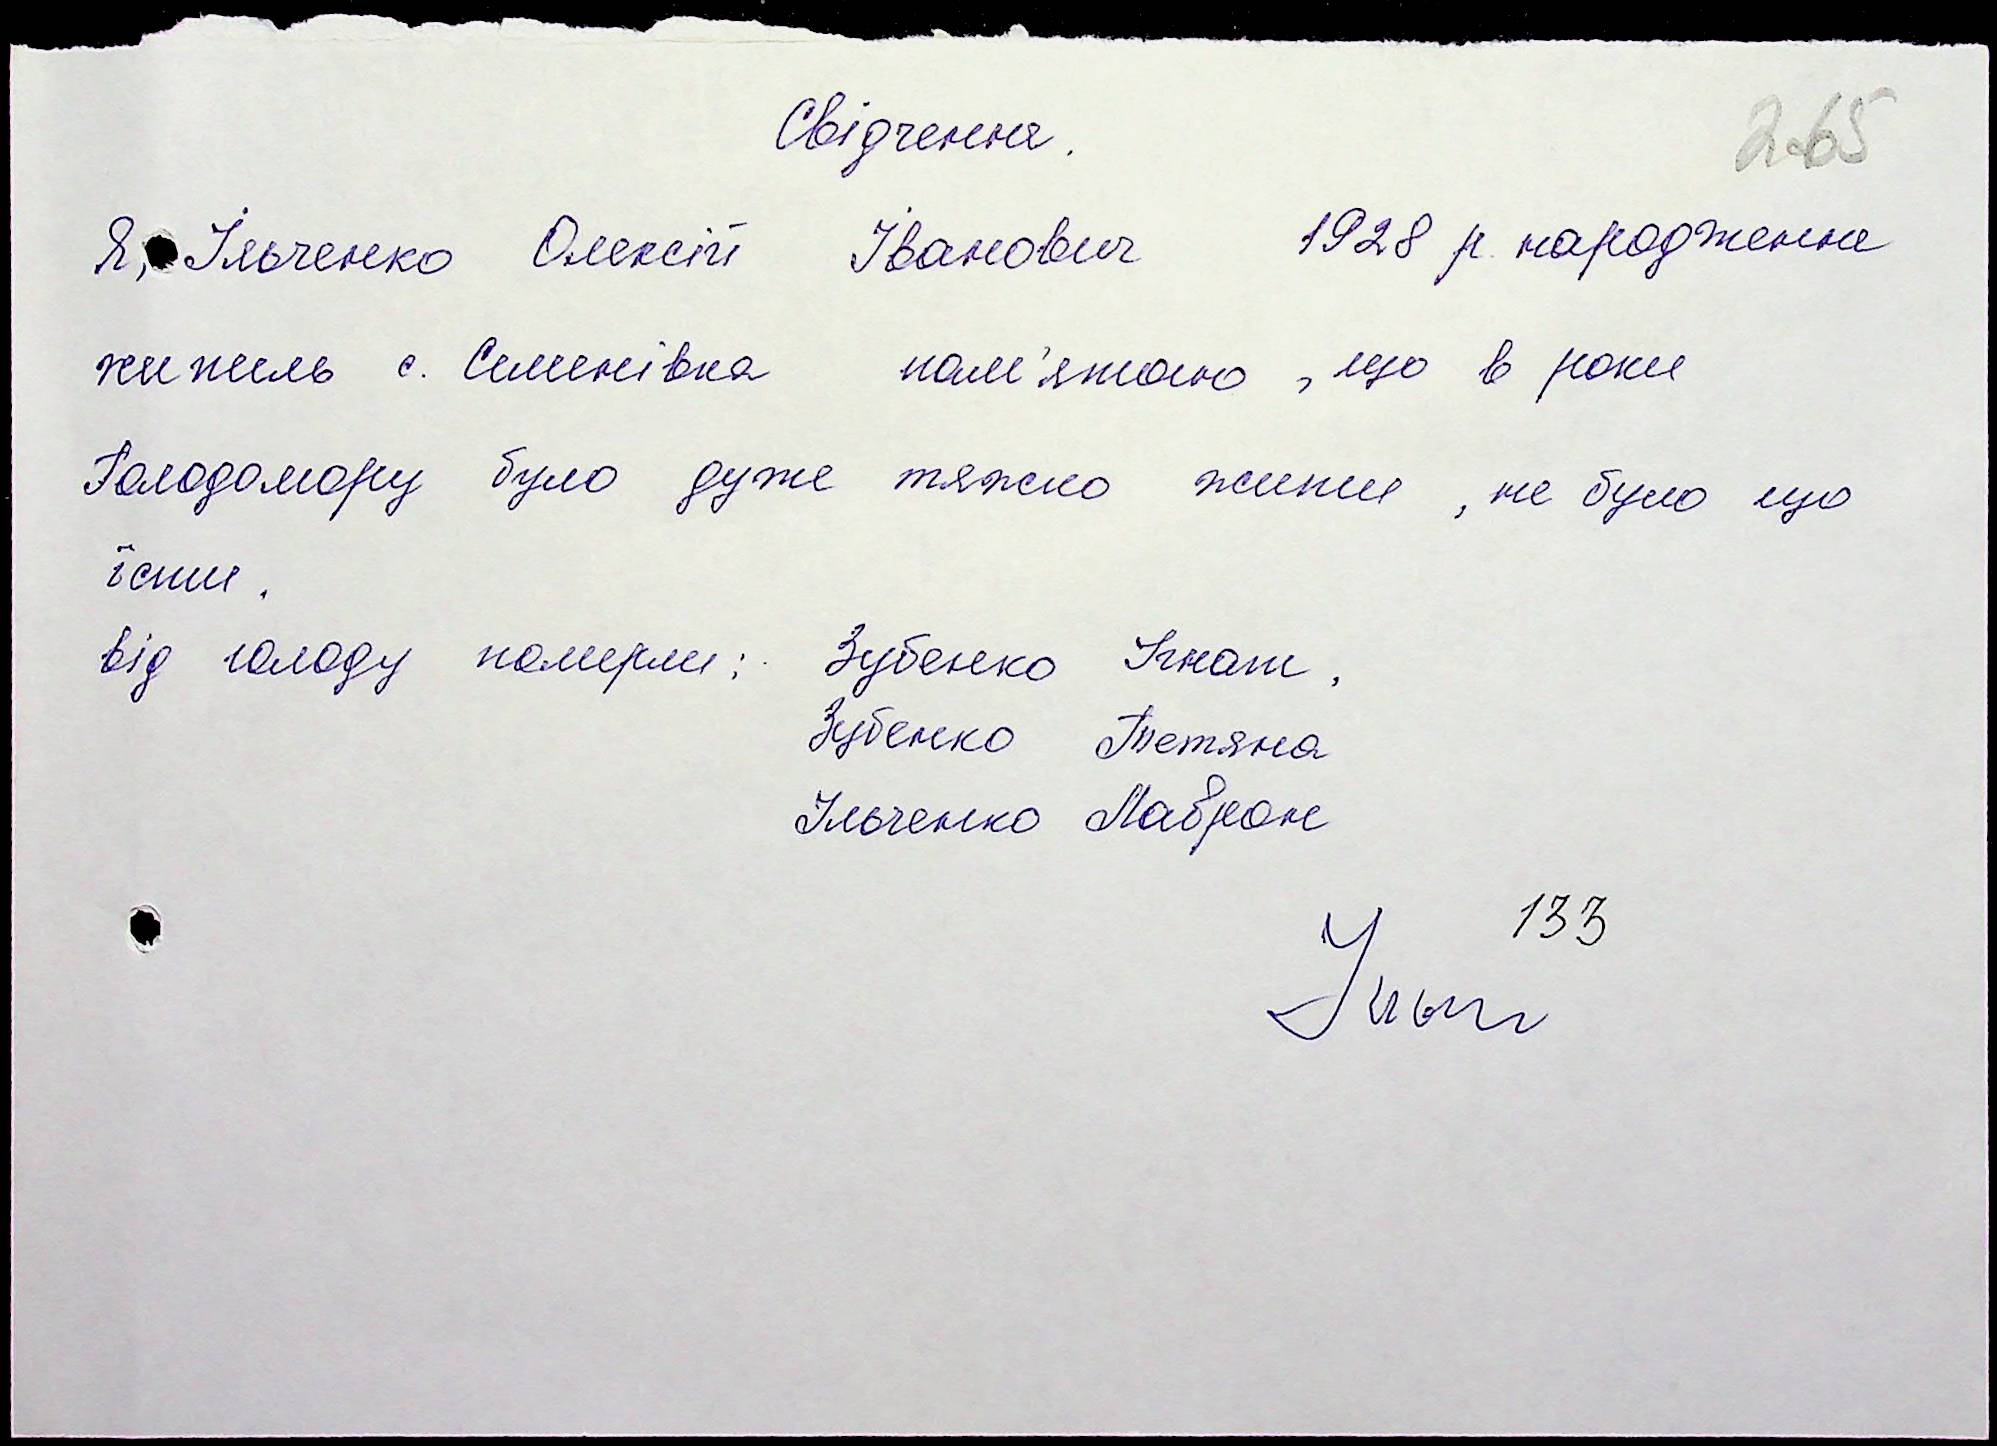 265
Свідчення.
Я, Ільченко Олексій Іванович 1928 р. народження
житель с. Семенівка пам'ятаю, що в роки
Голодомору було дуже тяжко жити, не було що
їсти.
від голоду померли: Зубенко Ігнат,
Зубенко Тетяна
Ільченко Маврон
133